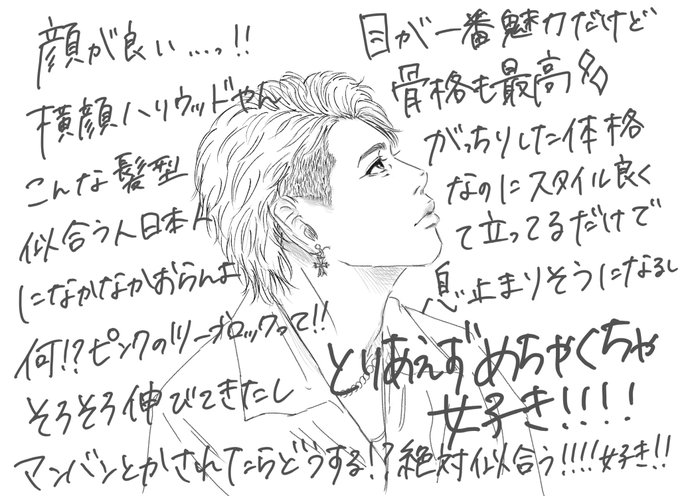 顔が良い…っ!!
横顔ハリウッドやん
こんな髪型
似合う人日本人
になかなかおらんよ
何!?ピンクのツーブロックって!!
そろそろ伸びてきたし
マンバンとかされたらどうする!?絶対似合う!!!!好き!!
目が一番魅力だけど
骨格も最高
がっちりした体格
なのにスタイル良く
て立ってるだけで
息止まりそうになるし
とりあえずめちゃくちゃ
好き!!!!